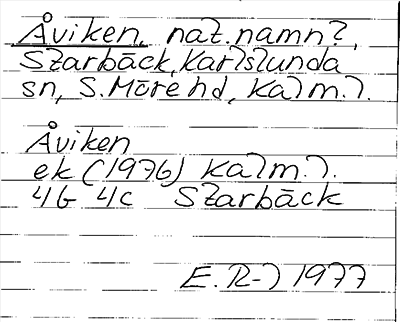 Åviken, nat.namn?,
Starbäck, Karlslunda
sn, S. Möre hd, Kalm.l.
Åviken
ek (1976) Kalm.l.
4G 4c Starbäck
E.R-l 1977